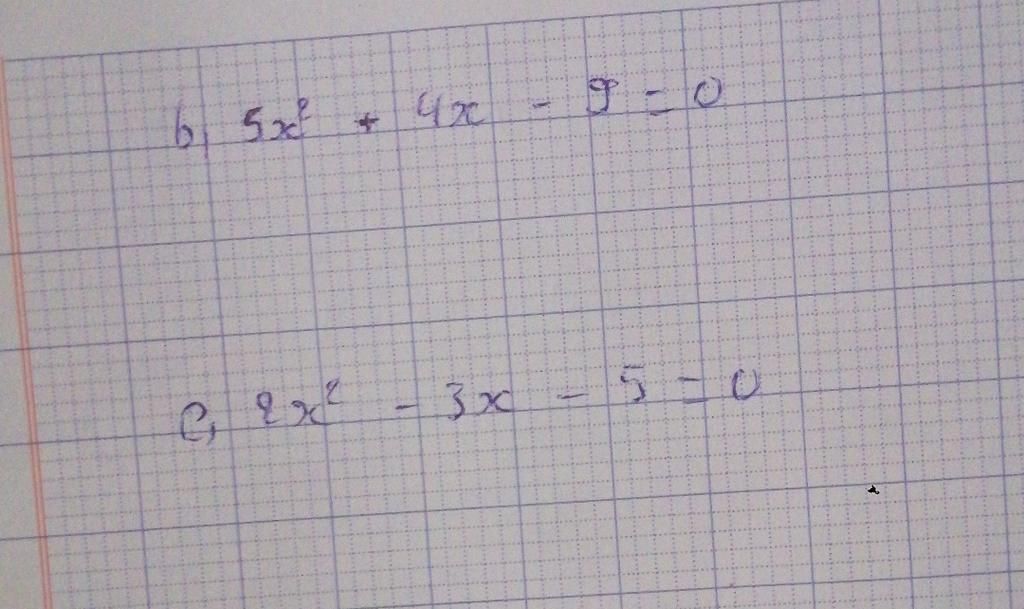 b, 5x² + 4x - 9 = 0
c, 2x² - 3x - 5 = 0